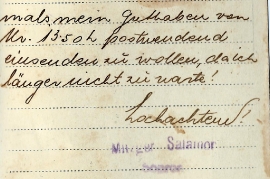 mals, mein Guthaben von
Kr. 13.50 h postwendend
einsenden zu wollen, da ich
länger nicht zu warte!
Hochachtend!
Salamon